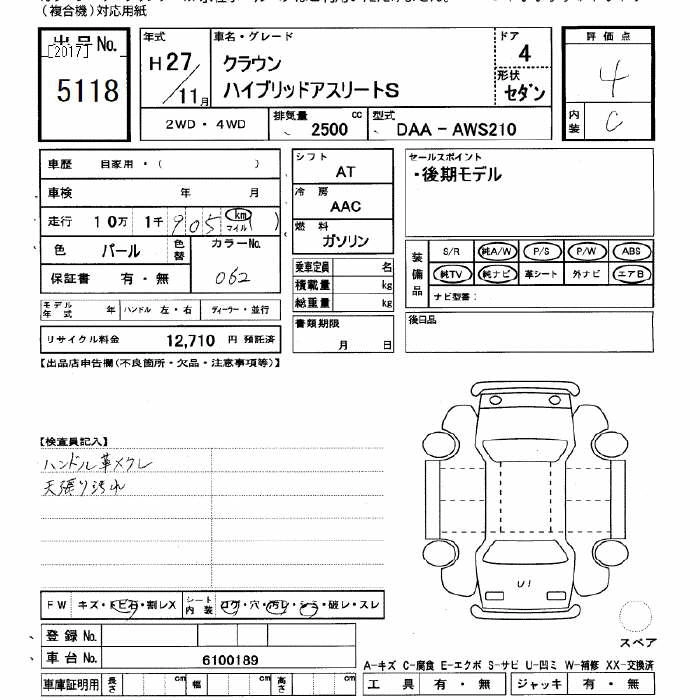 （複合機）対応用紙
出品No.
[2017]
5118
年式
H27/11月
車名・グレード
クラウン
ハイブリッドアスリートS
ドア
4
形状
セダン
評価点
4
内装
C
2WD・4WD
排気量 2500 cc
型式 DAA－AWS210
車歴 自家用・（ ）
車検 年 月
走行 10万 1千 905 km マイル ( )
色 パール 色替
カラーNo.
062
保証書 有・無
モデル年式 年 ハンドル 左・右 ディーラー・並行
リサイクル料金 12,710 円 預託済
シフト
AT
冷房
AAC
燃料
ガソリン
乗車定員 名
積載量 kg
総重量 kg
書類期限
月 日
セールスポイント
・後期モデル
装備品
S/R 純A/W P/S P/W ABS
純TV 純ナビ 革シート 外ナビ エアB
ナビ型番：
後日品
【出品店申告欄(不良箇所・欠品・注意事項等)】
【検査員記入】
ハンドル革メクレ
天張り汚れ
FW キズ・トビ石・割レX
シート内装 コゲ・穴・汚レ・シミ・破レ・スレ
登録No.
車台No. 6100189
車庫証明用 長さ cm 幅 cm 高さ cm
U1
スペア
A-キズ C-腐食 E-エクボ S-サビ U-凹ミ W-補修 XX-交換済
工具 有・無 ジャッキ 有・無